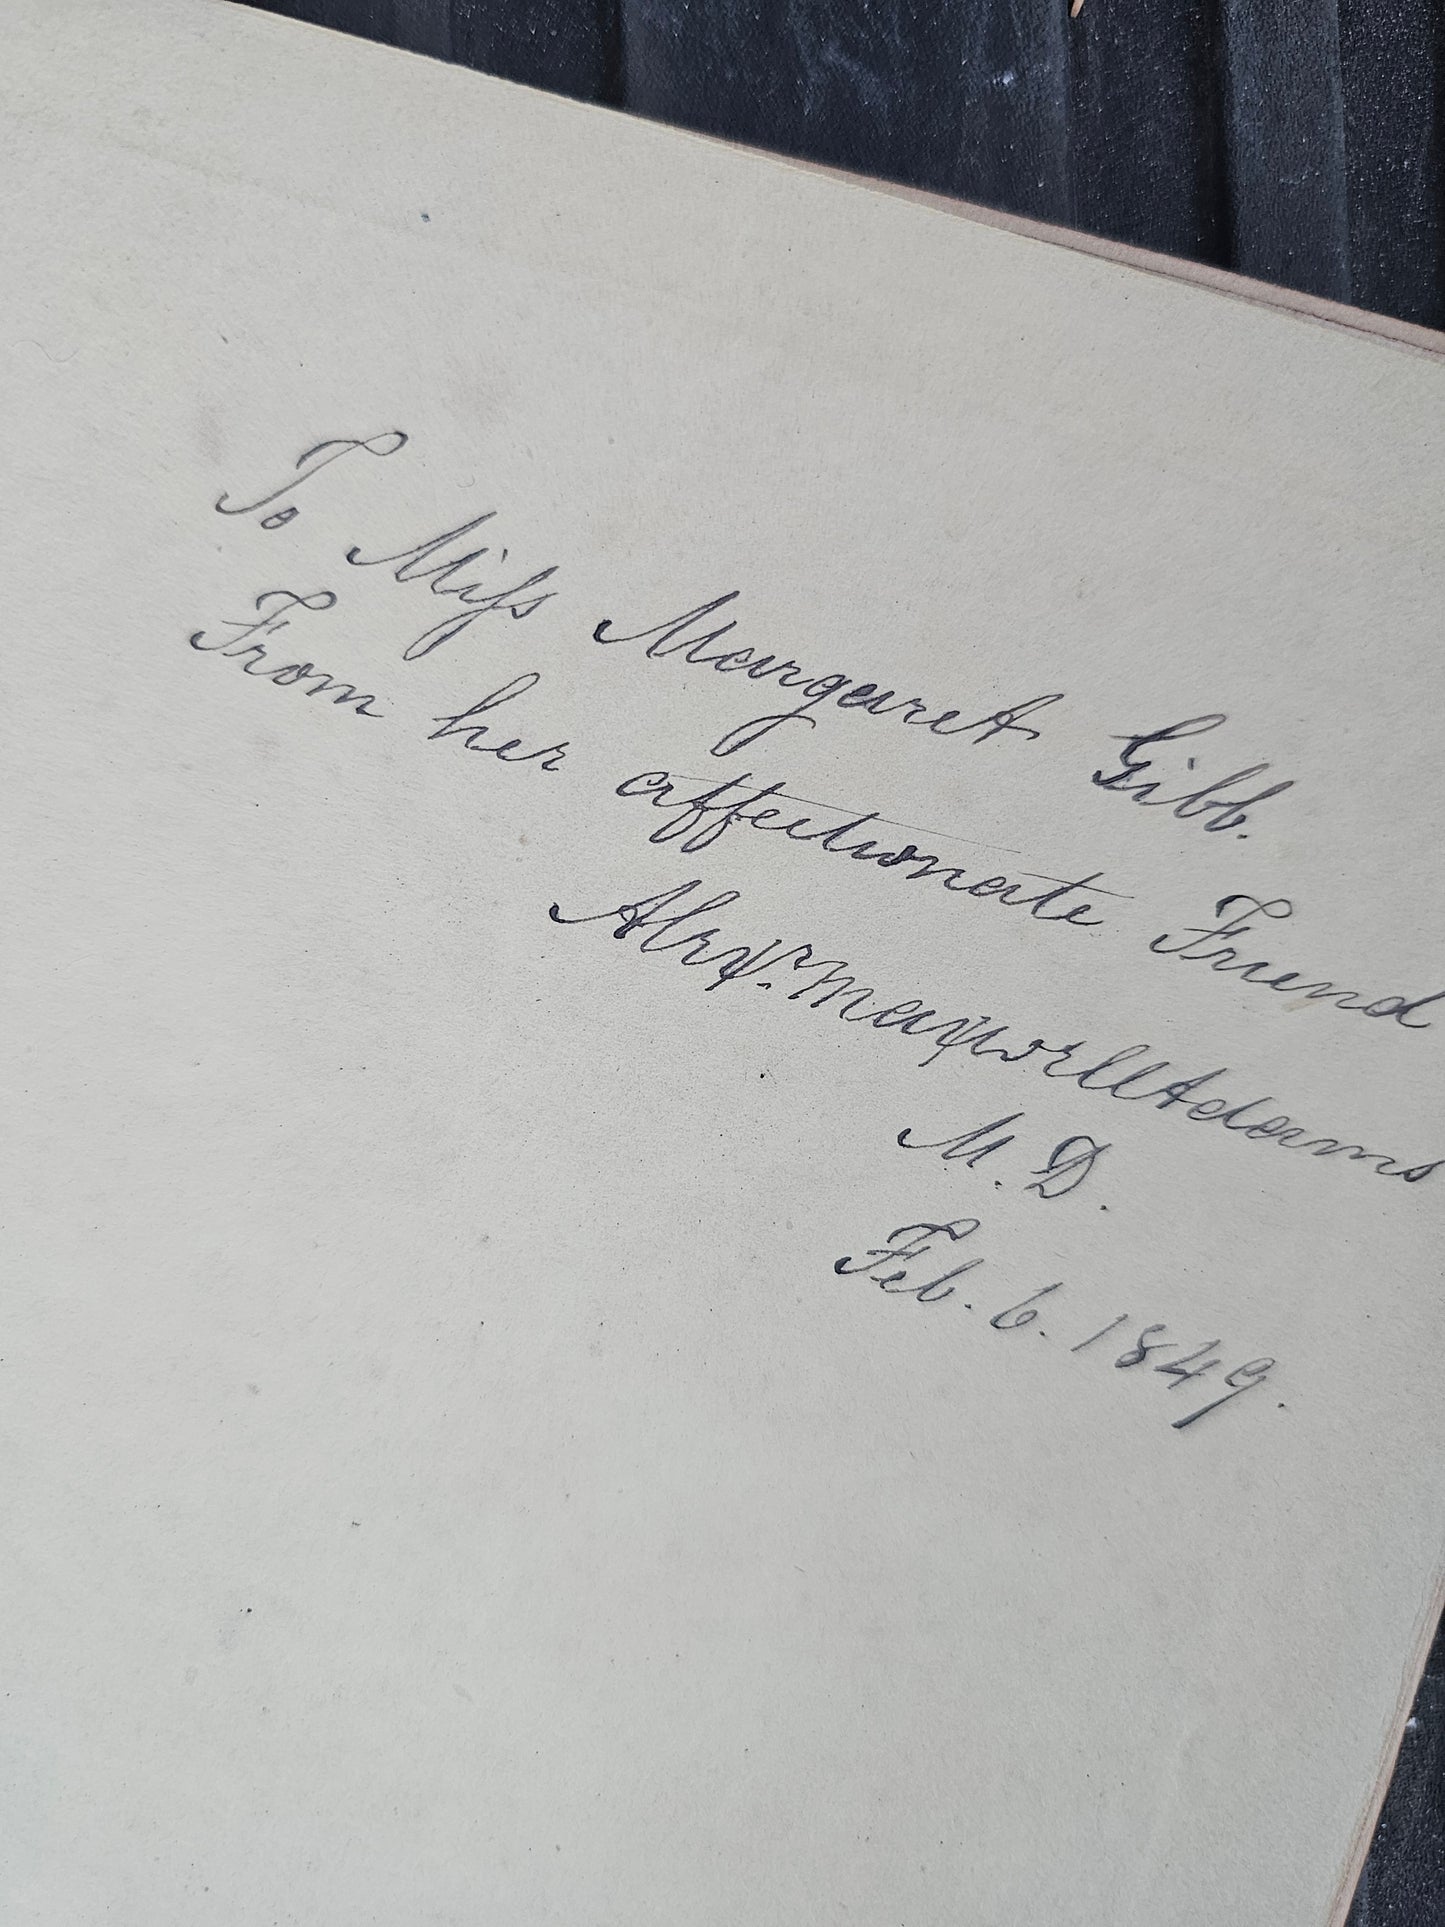 To Miss Margaret Gibb.
From her affectionate Friend
Alexr. Maxwell Adams
M. D.
Feb. 6. 1849.